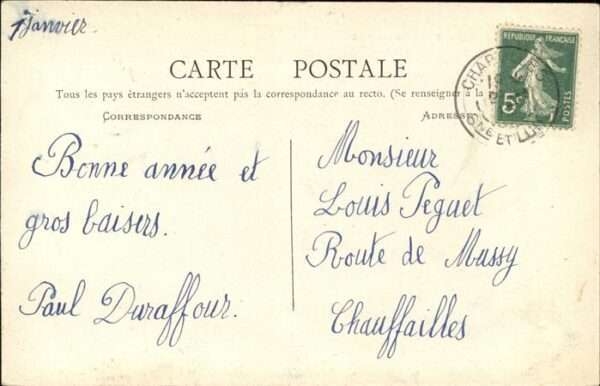 1 Janvier.
RÉPUBLIQUE FRANÇAISE
5c
POSTES
CARTE POSTALE
Tous les pays étrangers n'acceptent pas la correspondance au recto. (Se renseigner à la
CORRESPONDANCE
ADRESSE
ONE ET L
Bonne année et
gros baisers.
Paul Duraffour.
Monsieur
Louis Peguet
Route de Mussy
Chauffailles